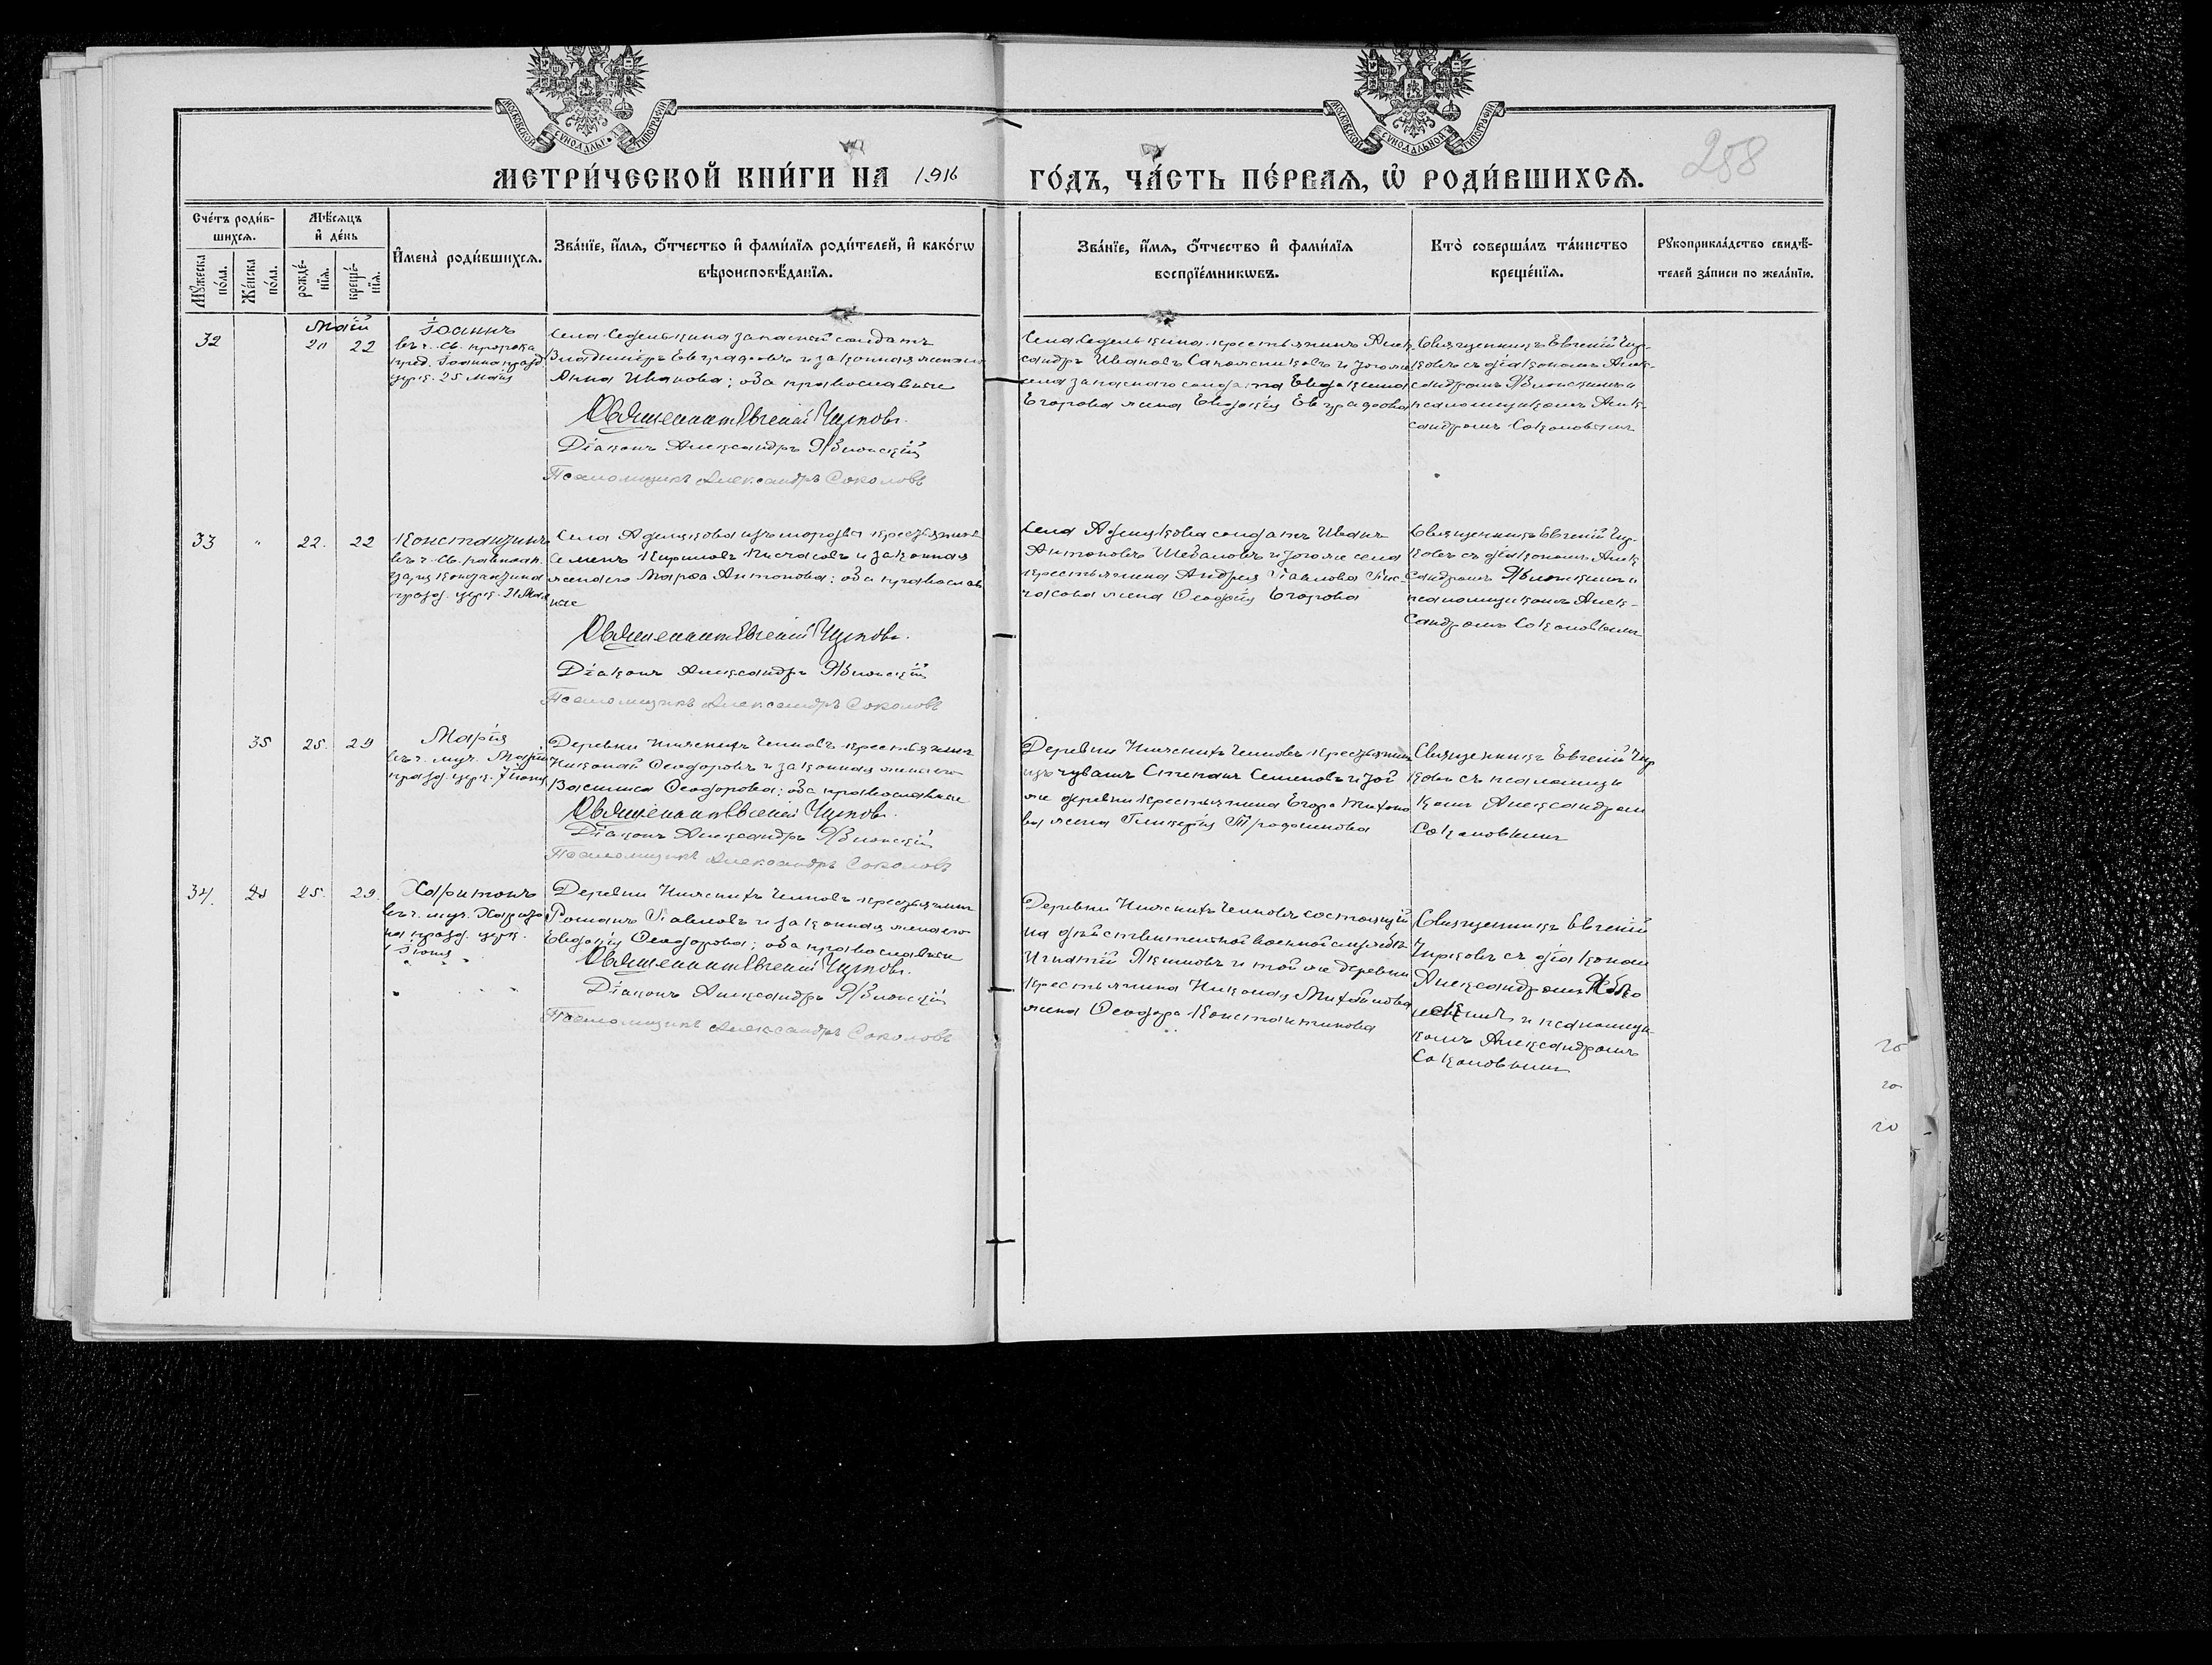 МОСКОВСКОЙ СѴНОДАЛЬН. ТИПОГРАФІИ
МОСКОВСКОЙ СѴНОДАЛЬНОЙ ТИПОГРАФІИ
258
МЕТРИ́ЧЕСКОЙ КНИ́ГИ НА 1916 ГО́ДЪ, ЧА́СТЬ ПЕ́РВАЯ, Ѡ РОДИ́ВШИХСЯ.
Сче́тъ роди́в-
шихся.
Мѣ́сяцъ
и де́нь
Му́жеска по́ла.
Же́нска по́ла.
рожде́-
нїя.
креще́-
нїя.
Имена̀ роди́вшихся.
Зва́нїе, и́мя, о́тчество и фами́лїя роди́телей, и како́гѡ
вѣроисповѣ́данїя.
Зва́нїе, и́мя, о́тчество и фами́лїя
воспрїе́мникѡвъ.
Кто̀ соверша́лъ та́инство
креще́нїя.
Рукоприкла́дство свидѣ́-
телей за́писи по жела́нїю.
Маій
32
20 22
Іоаннъ
въ ч. св. пророка
пред. Іоанна празд
церк. 25 Мая
Села Седелькина запасной солдатъ
Владиміръ Евграфовъ и законная жена его
Анна Иванова; оба православные
Священникъ Евгеній Чирковъ.
Діаконъ Александръ Яблонскій
Псаломщикъ Александръ Соколовъ
Села Седелькина крестьянинъ Алек-
сандръ Ивановъ Сапожниковъ и того же
села запаснаго солдата Евдокима
Егорова жена Евдокія Евграфова
Священникъ Евгеній Чир-
ковъ съ діакономъ Алек-
сандромъ Яблонскимъ и
псаломщикомъ Алек-
сандромъ Соколовымъ
33 " 22. 22
Константинъ
въ ч. св. равноап.
царя Константина
празд. церк. 21 Мая
Села крестьянинъ
Семенъ Кириловъ и законная
жена его Марѳа Антонова; оба православ
ные
Священникъ Евгеній Чирковъ.
Діаконъ Александръ Яблонскій
Псаломщикъ Александръ Соколовъ
Села солдатъ Иванъ
Антоновъ и того же села
крестьянина Андрея Павлова
жена Ѳеодосія Егорова
Священникъ Евгеній Чир-
ковъ съ діакономъ Алек
сандромъ Яблонскимъ и
псаломщикомъ Алек-
сандромъ Соколовымъ
35 25. 29
Марія
въ ч. муч. Маріи
празд. церк. 7 Іюня
Деревни Нижнихъ крестьянинъ
Николай Ѳеодоровъ и законная жена его
Василиса Ѳеодорова; оба православные
Священникъ Евгеній Чирковъ.
Діаконъ Александръ Яблонскій
Псаломщикъ Александръ Соколовъ
Деревни Нижнихъ крестьянинъ
изъ чувашъ Степанъ Семеновъ и той
же деревни крестьянина Егора Тихоно
ва жена Гликерія Трофимова
Священникъ Евгеній Чир
ковъ съ псаломщи
комъ Александромъ
Соколовымъ
34. 25. 29
Харитонъ
въ ч. муч. Харито
на празд. церк.
1 Іюня
Деревни Нижнихъ крестьянинъ
Романъ Павловъ и законная жена его
Евдокія Ѳеодорова; оба православные
Священникъ Евгеній Чирковъ.
Діаконъ Александръ Яблонскій
Псаломщикъ Александръ Соколовъ
Деревни Нижнихъ состоящій
на дѣйствительной военной службѣ
Игнатій Якимовъ и той же деревни
крестьянина Николая Михайлова
жена Ѳеодора Константинова
Священникъ Евгеній
Чирковъ съ діакономъ
Александромъ Ябло
нскимъ и псаломщи-
комъ Александромъ
Соколовымъ